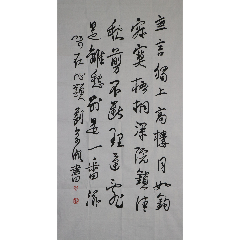 無言獨上高樓月如鈎
寂寞梧桐深院鎖清
秋剪不斷理還亂
是離愁別是一番滋
味在心頭 劉 書